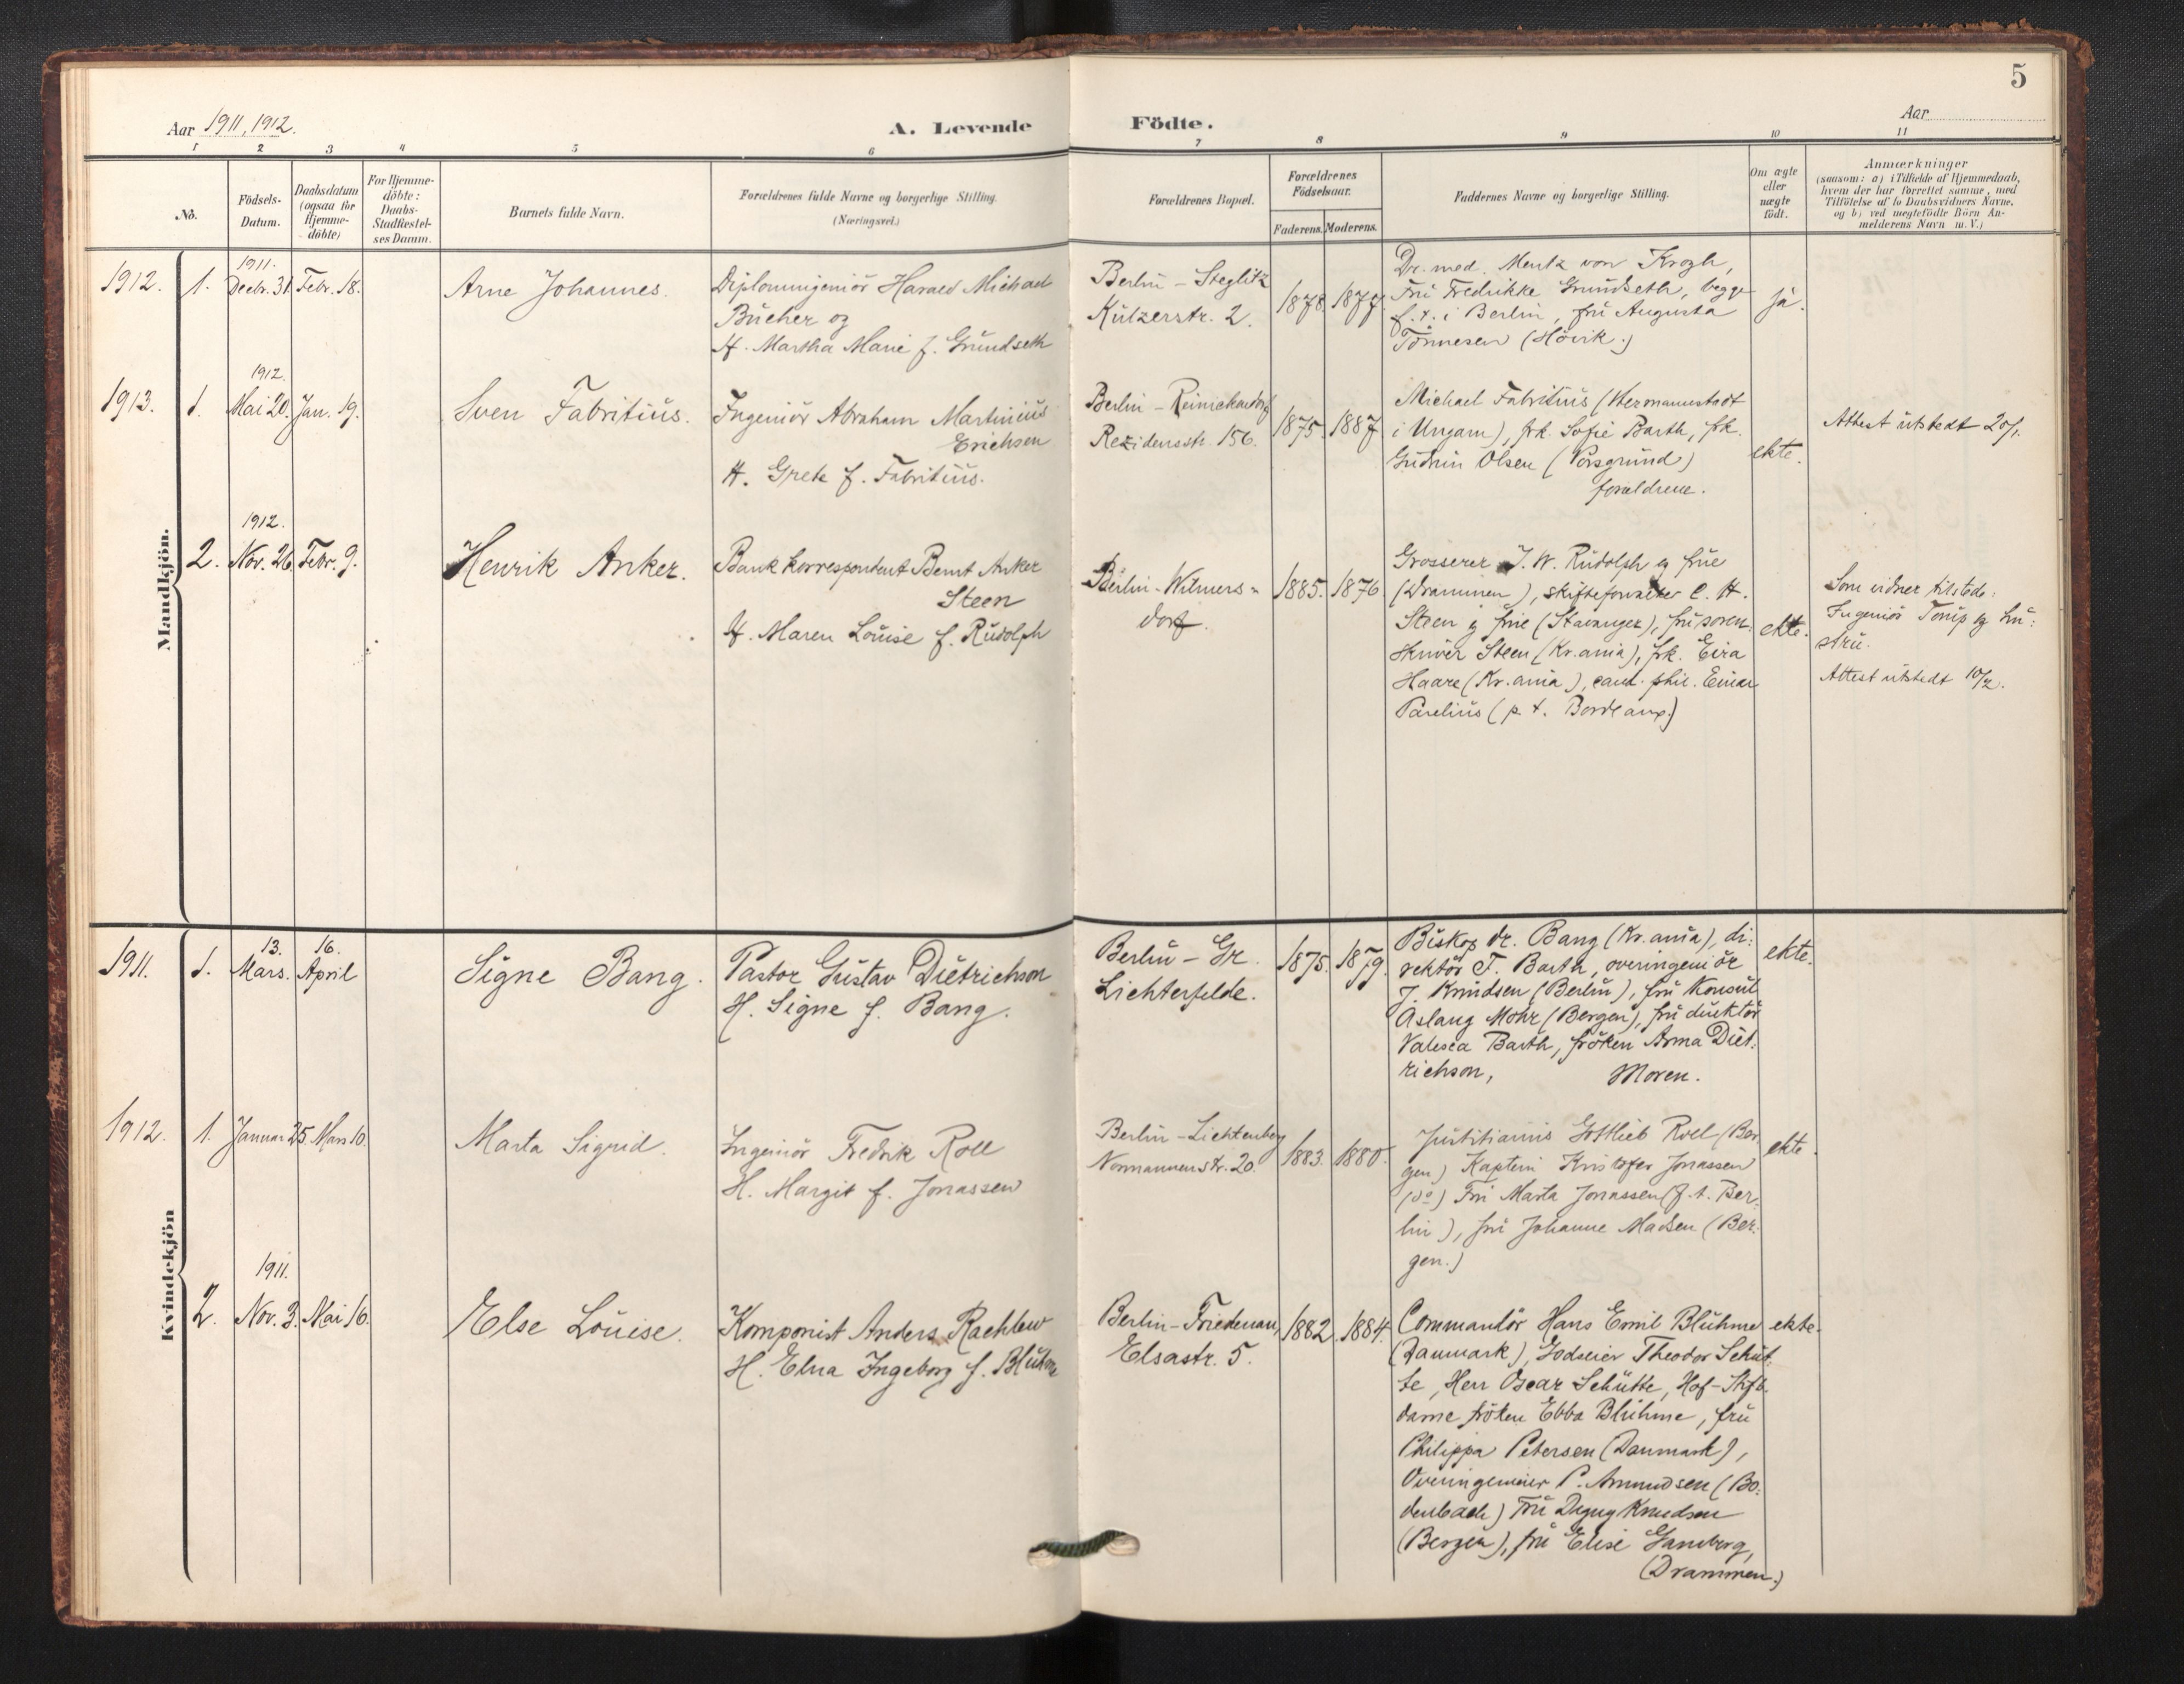 5
Aar 1911, 1912.
A. Levende
Födte.
Aar
1
2
3
4
5
6
7
8
9
10
11
No.
Födsels-
Datum.
Daabsdatum
(ogsaa for
Hjemme-
döbte)
For Hjemme-
döbte:
Daabs-
Stadfæstel-
ses Datum.
Barnets fulde Navn.
Forældrenes fulde Navne og borgerlige Stilling.
(Næringsvei.)
Forældrenes Bopæl.
Forældrenes
Födselsaar.
Faderens. Moderens.
Faddernes Navne og borgerlige Stilling.
Om ægte
eller
uægte
födt.
Anmærkninger
(saasom: a) i Tilfælde af Hjemmedaab,
hvem der har forrettet samme, med
Tilföielse af to Daabsvidners Navne,
og b) ved uægtefödte Börn An-
melderens Navn m. V.)
Mandkjön.
1912.
1.
1911.
Decbr. 31.
Febr. 18.
Arne Johannes.
Diplomingeniör Harald Michael
Bücher og
H. Martha Marie f. Grundseth
Berlin - Steglitz
Külzerstr. 2.
1878.
1877.
Dr. med. Mentz von Krogh,
Fru Fredrikke Grundseth, begge
f. t. i Berlin, fru Augusta
Tönnesen (Hövik.)
ja.
1913.
1.
1912.
Mai 20.
Jan. 19.
Sven Fabritius.
Ingeniör Abraham Martinius
Erichsen
H. Grete f. Fabritius.
Berlin - Reinickendorf
Residensstr. 156.
1875.
1887
Michael Fabritius (Hermannstadt
i Ungarn), frk. Sofie Barth, frk.
Gudrun Olsen (Porsgrund)
forældrene.
ekte.
Attest utstedt 20/1.
2.
1912.
Nov. 26.
Febr. 9.
Henrik Anker.
Bankkorrespondent Bernt Anker
Steen
H. Maren Louise f. Rudolph
Berlin - Wilmers-
dorf.
1885.
1876
Grosserer J. W. Rudolph og frue
(Drammen), skifteforvalter C. H.
Steen og frue (Stavanger), fru soren-
skriver Steen (Kr.ania), frk. Eira
Haare (Kr.ania), cand. phil. Einar
Parelius (p. t. Bordeaux.)
ekte.
Som vidner tilstede:
Ingeniör Torup og hu-
stru.
Attest utstedt 10/2.
Kvindekjön
1911.
1.
13.
Mars.
16.
April
Signe Bang.
Pastor Gustav Dietrichson
H. Signe f. Bang.
Berlin - Gr.
Lichterfelde.
1875.
1879.
Biskop dr. Bang (Kr.ania), di-
rektör F. Barth, overingeniör
J. Knudsen (Berlin), fru Konsul
Aslaug Mohr (Bergen), fru direktör
Valesca Barth, fröken Anna Diet-
richson, Moren.
ekte.
1912.
1.
Januar 25.
Mars 10.
Marta Sigrid.
Ingeniör Fredrik Roll
H. Margit f. Jonassen
Berlin - Lichtenberg
Normannenstr. 20
1883.
1880.
Justitiarius Gottlieb Roll (Ber-
gen) Kaptein Kristofer Jonassen
(do) Fru Marta Jonassen (f. t. Ber-
lin), fru Johanne Madsen (Ber-
gen.)
ekte.
2.
1911.
Nov. 3.
Mai 16.
Else Louise.
Komponist Anders Rachlew
H. Elna Ingeborg f. Bluhme
Berlin - Friedenau,
Elsastr. 5.
1882.
1884.
Commandör Hans Emil Bluhme
(Danmark), Godseier Theodor Schüt-
te, Herr Oscar Schütte, Hof-
dame fröken Ebba Bluhme, fru
Philippa Petersen (Danmark),
Overingeniör P. Amundsen (Bo-
denbach) Fru Dagny Knudsen
(Bergen), fru Elise
(Drammen.)
ekte.